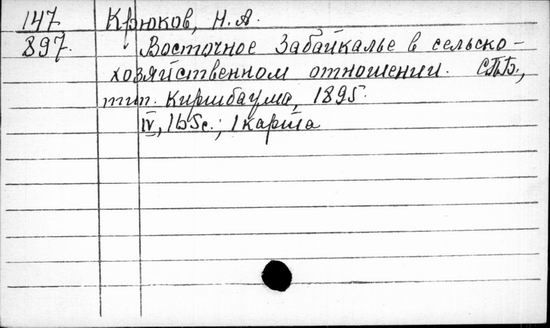 147 Крюков, Н.А.
897. Восточное Забайкалье в сельско-
хозяйственном отношении. СПБ.,
тип. Киршбаума, 1895.
IV, 165с.; 1 карта